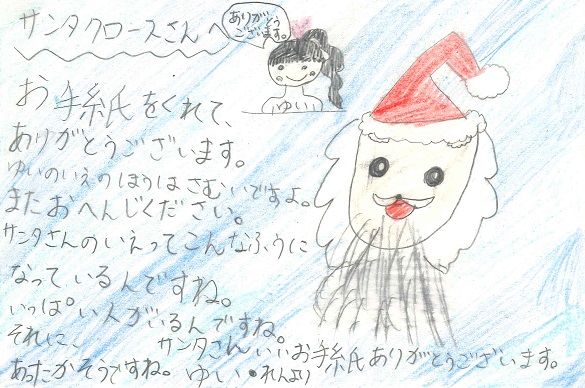 サンタクロースさんへ
ありがとう
ございます。
ゆい
お手紙をくれて、
ありがとうございます。
ゆいのいえのほうはさむいですよ。
またおへんじください。
サンタさんのいえってこんなふうに
なっているんですね。
いっぱい人がいるんですね。
それに、
あったかそうですね。
サンタさんいいお手紙ありがとうございます。
ゆい・れんより